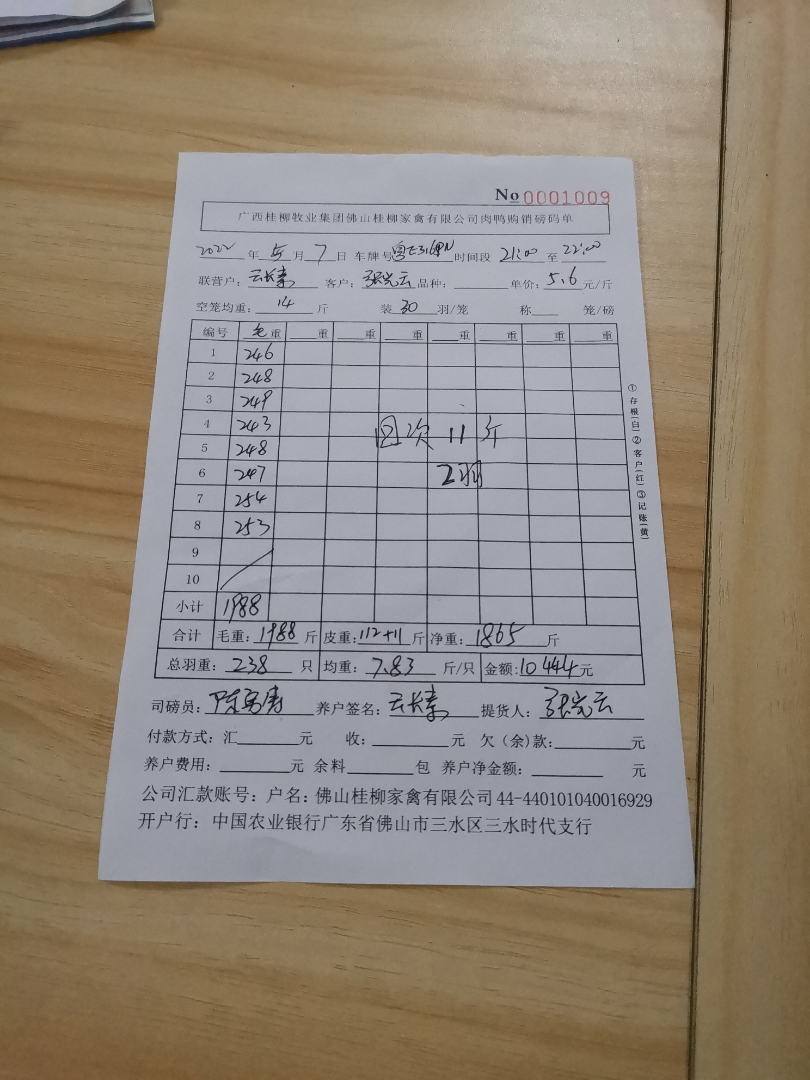 No 0001009
广西桂柳牧业集团佛山桂柳家禽有限公司肉鸭购销磅码单
2022 年 5 月 7 日 车牌号 时间段 21:00 至 22:00
联营户: 客户: 张光云 品种: 单价: 5.6 元/斤
空笼均重: 14 斤 装 30 羽/笼 称 笼/磅
编号 毛重 重 重 重 重 重 重 重
1 246
2 248
3 249
4 243 回次 11斤
5 248
6 247 2羽
7 254
8 253
9
10
小计 1988
合计 毛重: 1988 斤 皮重: 112+11 斤 净重: 1865 斤
总羽重: 238 只 均重: 7.83 斤/只 金额: 10444 元
司磅员: 养户签名: 提货人: 张光云
付款方式: 汇 元 收: 元 欠（余)款: 元
养户费用: 元 余料 包 养户净金额: 元
公司汇款账号: 户名: 佛山桂柳家禽有限公司 44-440101040016929
开户行: 中国农业银行广东省佛山市三水区三水时代支行
①存根(白)②客户(红)③记账(黄)